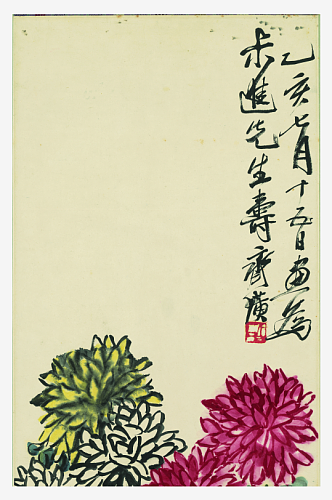 乙亥七月十五日画為
步進先生壽齊璜